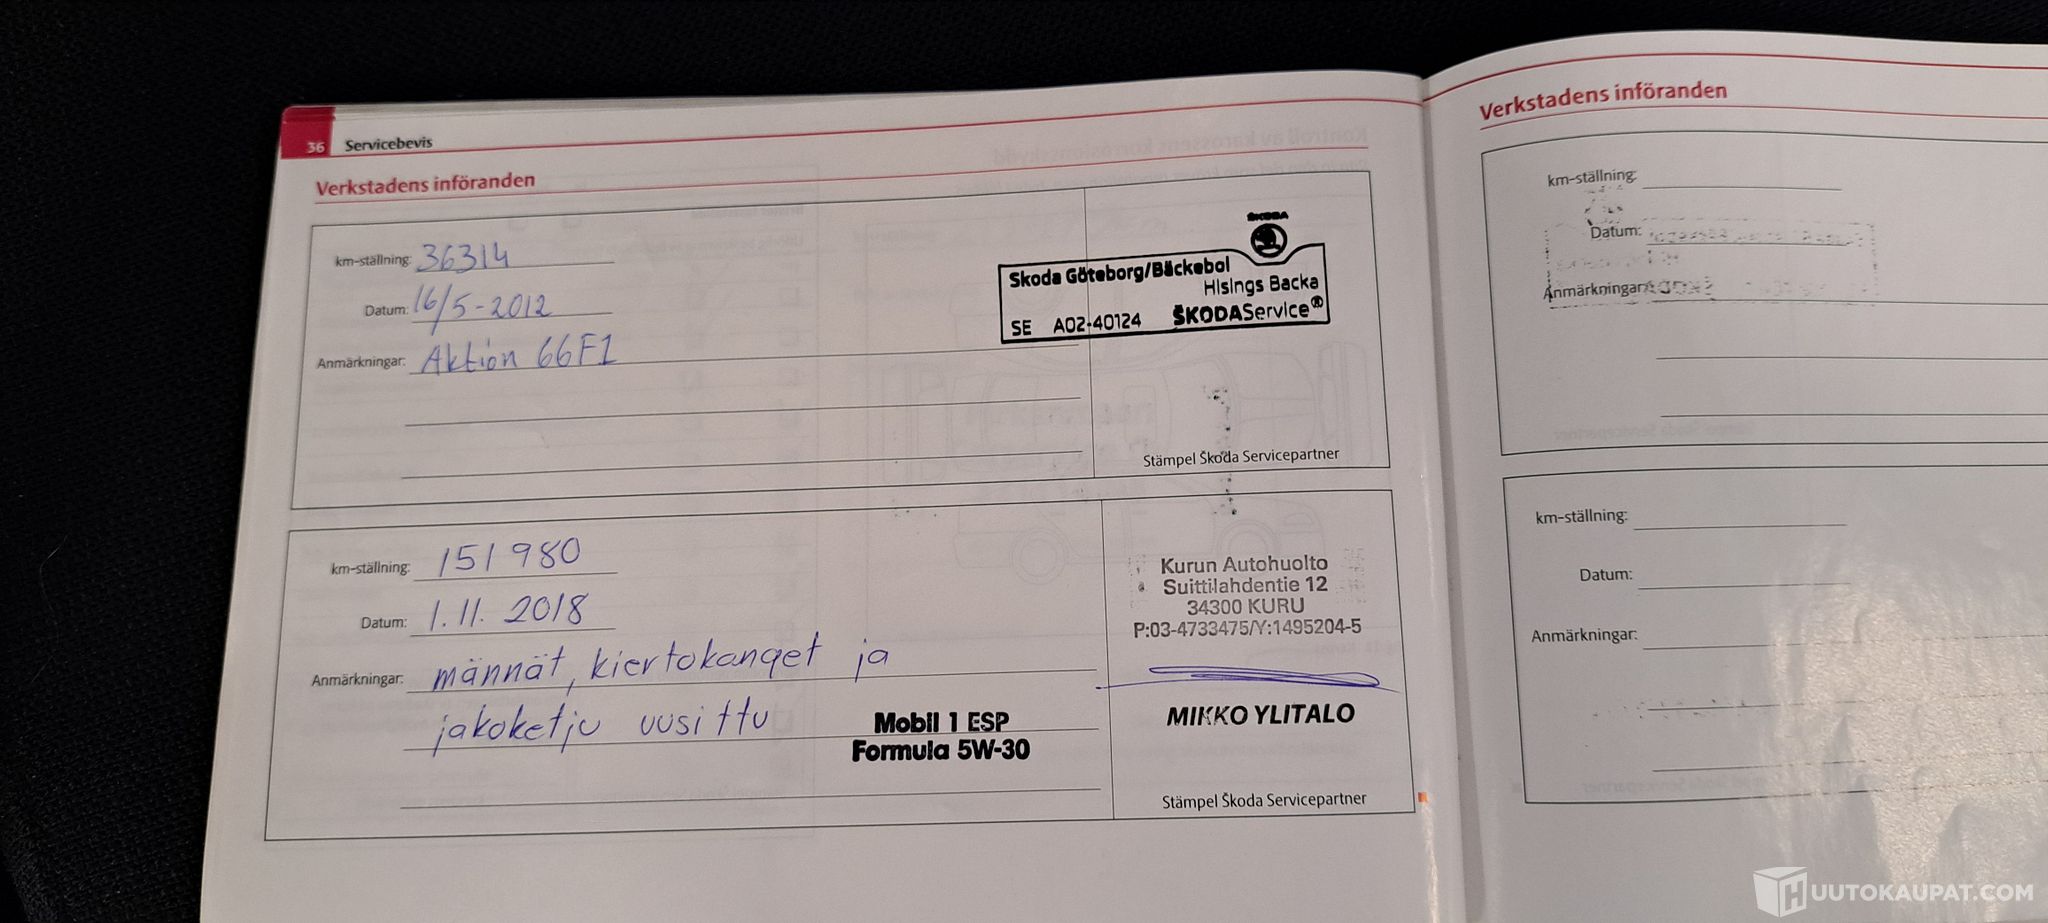 36 Servicebevis
Verkstadens införanden
km-ställning: 36314
Datum: 16/5-2012
Anmärkningar: Aktion 66F1
ŠKODA
Skoda Göteborg/Bäckebol
Hisings Backa
SE A02-40124 ŠKODAService®
Stämpel Škoda Servicepartner
km-ställning: 151 980
Datum: 1.11. 2018
Anmärkningar: männät, kiertokanget ja
jakoketju uusittu
Mobil 1 ESP
Formula 5W-30
Kurun Autohuolto
Suittilahdentie 12
34300 KURU
P:03-4733475/Y:1495204-5
MIKKO YLITALO
Stämpel Škoda Servicepartner
Verkstadens införanden
km-ställning:
Datum:
Anmärkningar:
km-ställning:
Datum:
Anmärkningar:
HUUTOKAUPAT.COM